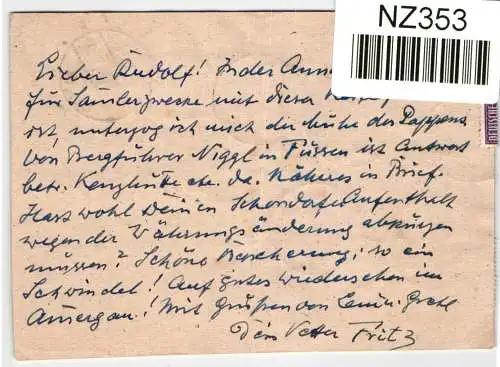 NZ353
Lieber Rudolf! In der Annah
für Sammlerzwecke mit dieser
ist, unterzog ich mich der Mühe des
von Bergführer Niggl in Füssen ist Antwort
betr. Kenzhütte etc. da. Näheres in Brief.
Hast wohl Deinen Schondorf-Aufenthalt
wegen der Währungsänderung abkürzen
müssen? Schöne Bescherung; so ein
Schwindel! Auf gutes Wiedersehen im
Amergau! Mit Grüßen von Grete
Dein Vetter Fritz